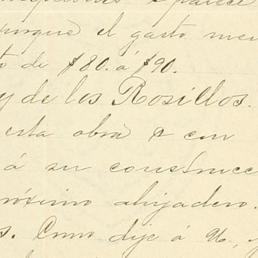 parece
aunque el gasto men
to de $80. á $90.
y de los Rosillos.
esta obra & con
á su construcc
próximo ahijadero.
s. Como dije á U., y